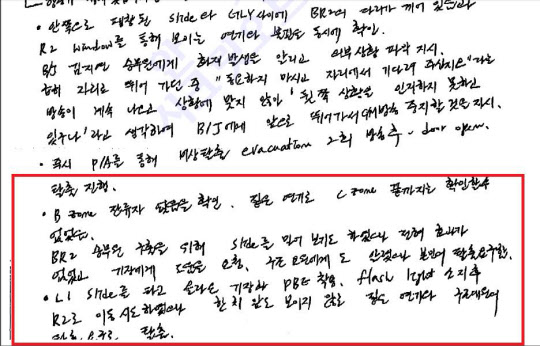 안쪽으로 팽창된 slide와 GLY 사이에 BR2의 다리가 끼어 있음과
R2 window를 통해 보이는 연기와 불꽃을 동시에 확인.
B/J 김지연 승무원에게 화재 발생을 알리고 외부상황 파악 지시.
급히 자리로 뛰어 가던 중 "동요하지 마시고 자리에서 기다려 주십시오"라는
방송이 계속 나오고 상황에 맞지 않아 '뒷쪽 상황은 인지하지 못하고
있구나'라고 생각하여 B/J에게 앞으로 뛰어가서 방송 중지할 것을 지시.
• 즉시 P/A를 통해 비상탈출 evacuation 2회 방송 후 door open.
탈출 진행.
• B zone 잔류자 없음을 확인. 짙은 연기로 C zone 끝까지는 확인할수
없었음.
BR2 승무원 구출을 위해 slide를 밀어 보기도 하였으나 전혀 효과가
없었고 기장에게 도움을 요청. 구조 요원에게도 알렸으나 본인의 탈출 요구함.
• L1 slide를 타고 올라온 기장과 PBE 착용. flash light 소지 후
R2로 이동 시도하였으나 한 치 앞도 보이지 않는 짙은 연기와 구조대원의
탈출 요구로 탈출.